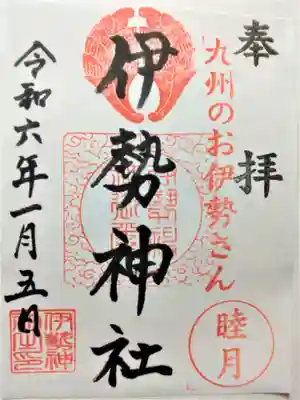 奉拝
九州のお伊勢さん
伊勢神社
睦月
令和六年一月五日